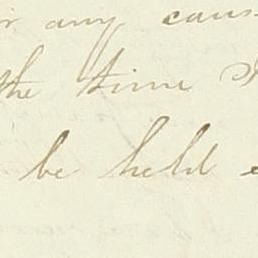 any caus
the time
be held